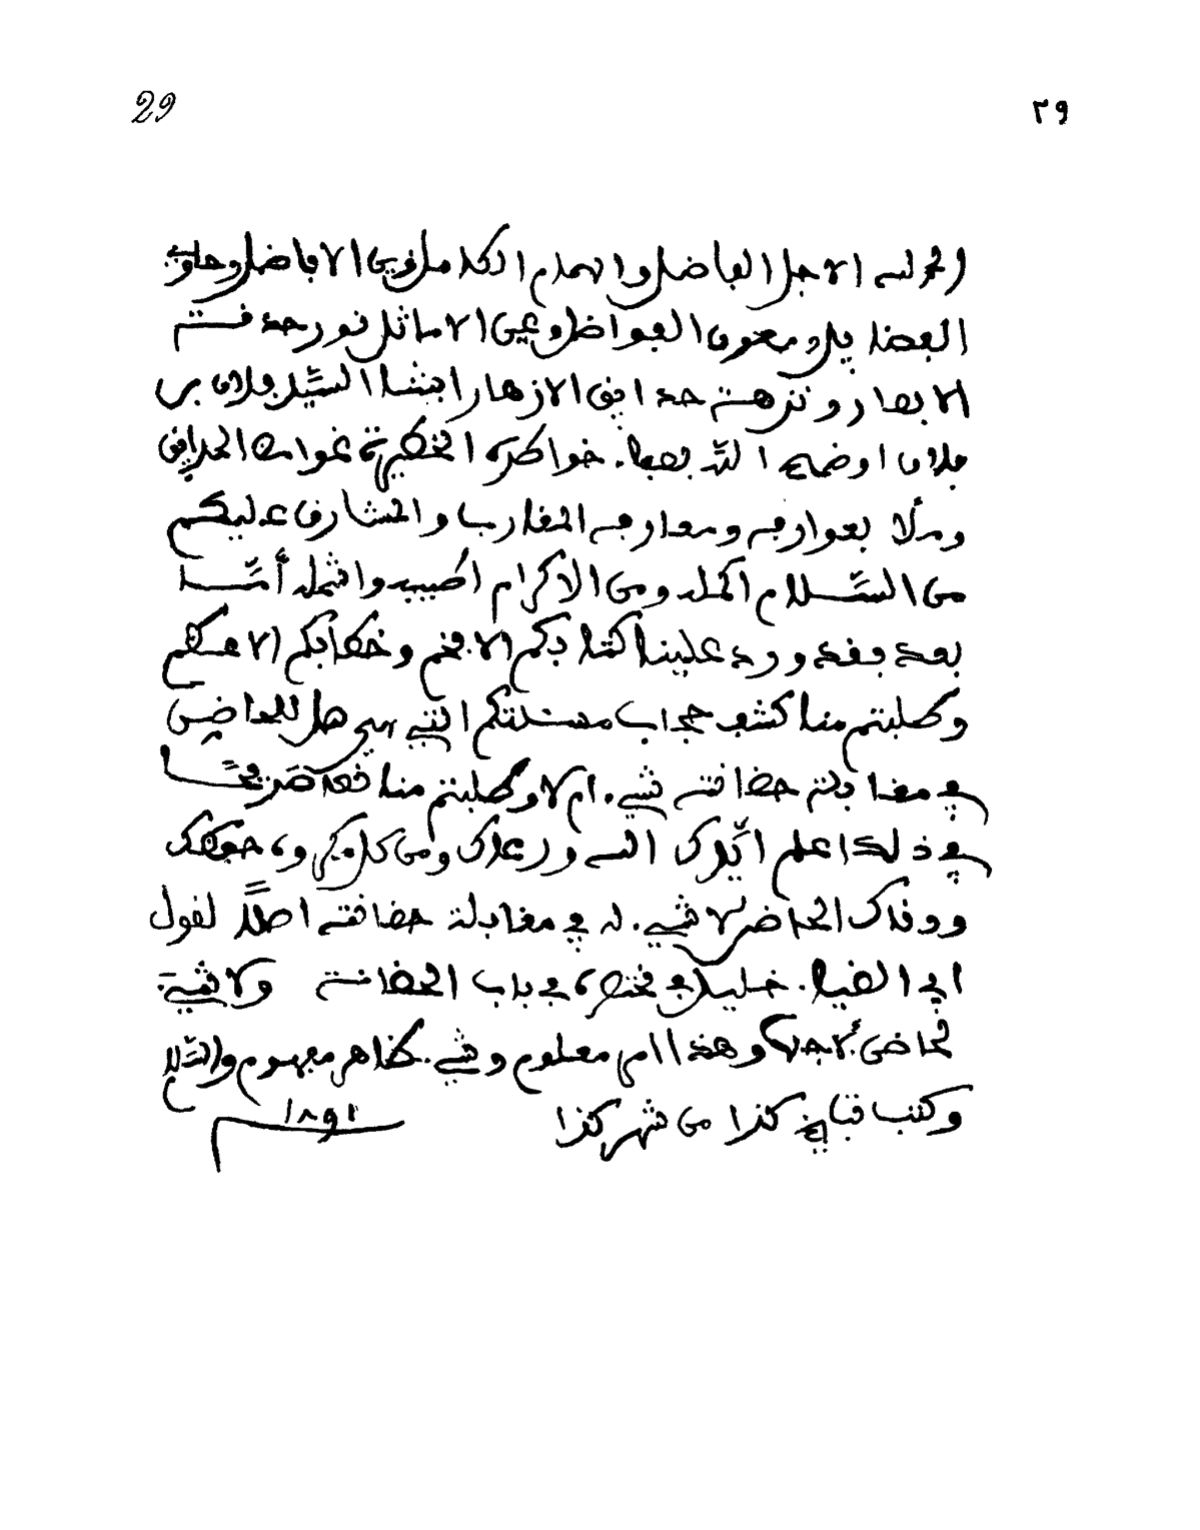 29 ٢٩
الى الاجل الفاضل والهمام الكامل زين الافاضل وحاوي
الفضايل ومعدن الفواضل وعين الاماثل نور حدقة
الابصار ونزهة حدايق الازهار ابننا السيّد فلان بن
فلان اوضح اللّه بضيا. خواطره الخطيرة غوامض الحقايق
وملأ بعوارفه ومعارفه المغارب والمشارق عليكم
من السّلام اكمله ومن الاكرام اطيبه واشمله أمّا
بعد فقد ورد علينا كتابكم الافخم وخطابكم الاعظم
وطلبتم منا كشف حجاب مسئلتكم التي هي هل للحاضن
في مقابلة حضانته شي. ام لا وطلبتم منا نصا صريحًا
في ذلك اعلم ايّدك الله ورعاك ومن كل مكروه حفظك
ووقاك الحاضن لا شي. له في مقابلة حضانته اصلًا لقول
ابي الضيا. خليل في مختصره في باب الحضانة ولا شي.
لحاضن لأجلها وهذا امر معلوم وشي. ظاهر مفهوم والسّلام
وكتب بتاريخ كذا من شهر كذا ١٨٩١